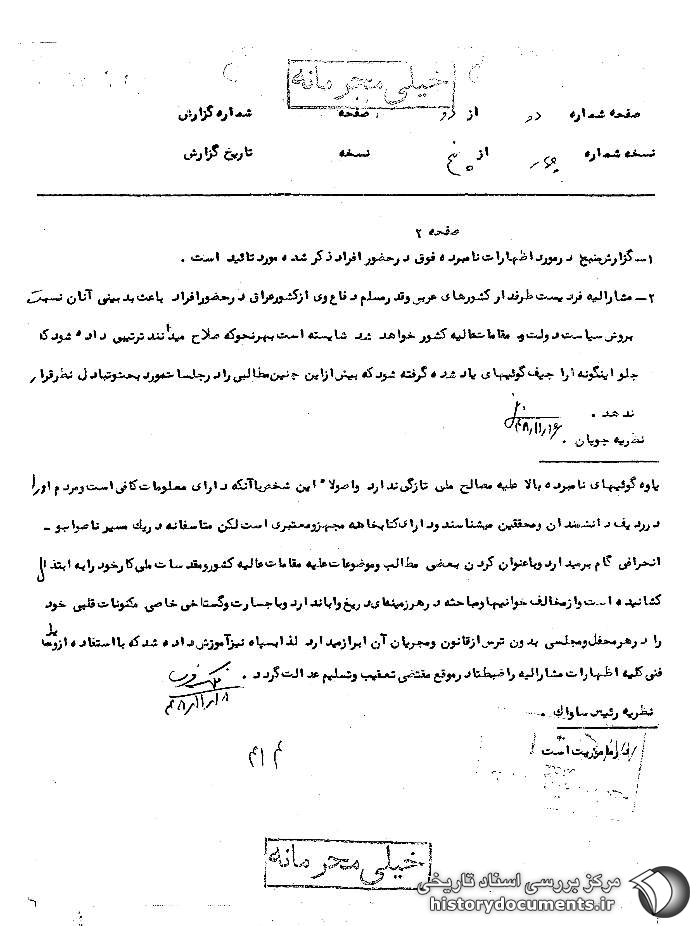 خیلی محرمانه
صفحه شماره دو از دو صفحه شماره گزارش
نسخه شماره چهار از پنج نسخه تاریخ گزارش
صفحه ۲
۱ـ گزارش منبع در مورد اظهارات نامبرده فوق در حضور افراد ذکر شده مورد تائید است .
۲ـ مشارالیه فردیست طرفدار کشورهای عربی وقدر مسلم دفاع وی از کشور عراق در حضور افراد باعث بدبینی آنان نسبت
بروش سیاست دولت و مقامات عالیه کشور خواهد شد شایسته است بهر نحو که صلاح میدانند ترتیبی داده شود که
جلو اینگونه اراجیف گوئیهای یاد شده گرفته شود که بیش از این چنین مطالبی را در جلسات مورد بحث و تبادل نظر قرار
ندهد .
۴۸/۱۱/۱۶
نظریه جویان .
یاوه گوئیهای نامبرده بالا علیه مصالح ملی تازگی ندارد واصولا" این شخص با آنکه دارای معلومات کافی است و مردم او را
در ردیف دانشمندان ومحققین میشناسند و دارای کتابخانه مجهز و معتبری است لکن متاسفانه در یک مسیر ناصواب و -
انحرافی گام برمیدارد و با عنوان کردن بعضی مطالب وموضوعات علیه مقامات عالیه کشور و مقدسات ملی کار خود را به ابتذال
کشانیده است و از مخالف خوانیها و مباحثه در هر زمینه‌ای دریغ و ابا ندارد و با جسارت و گستاخی خاصی مکنونات قلبی خود
را در هر محفل و مجلسی بدون ترس از قانون ومجریان آن ابراز میدارد لذا بسپاه نیز آموزش داده شد که با استفاده از وسایل
فنی کلیه اظهارات مشارالیه را ضبط تا در موقع مقتضی تعقیب وتسلیم عدالت گردد .
۴۸/۱۱/۱۸
نظریه رئیس ساواک .
در ماموریت است
خیلی محرمانه
مرکز بررسی اسناد تاریخی
historydocuments.ir